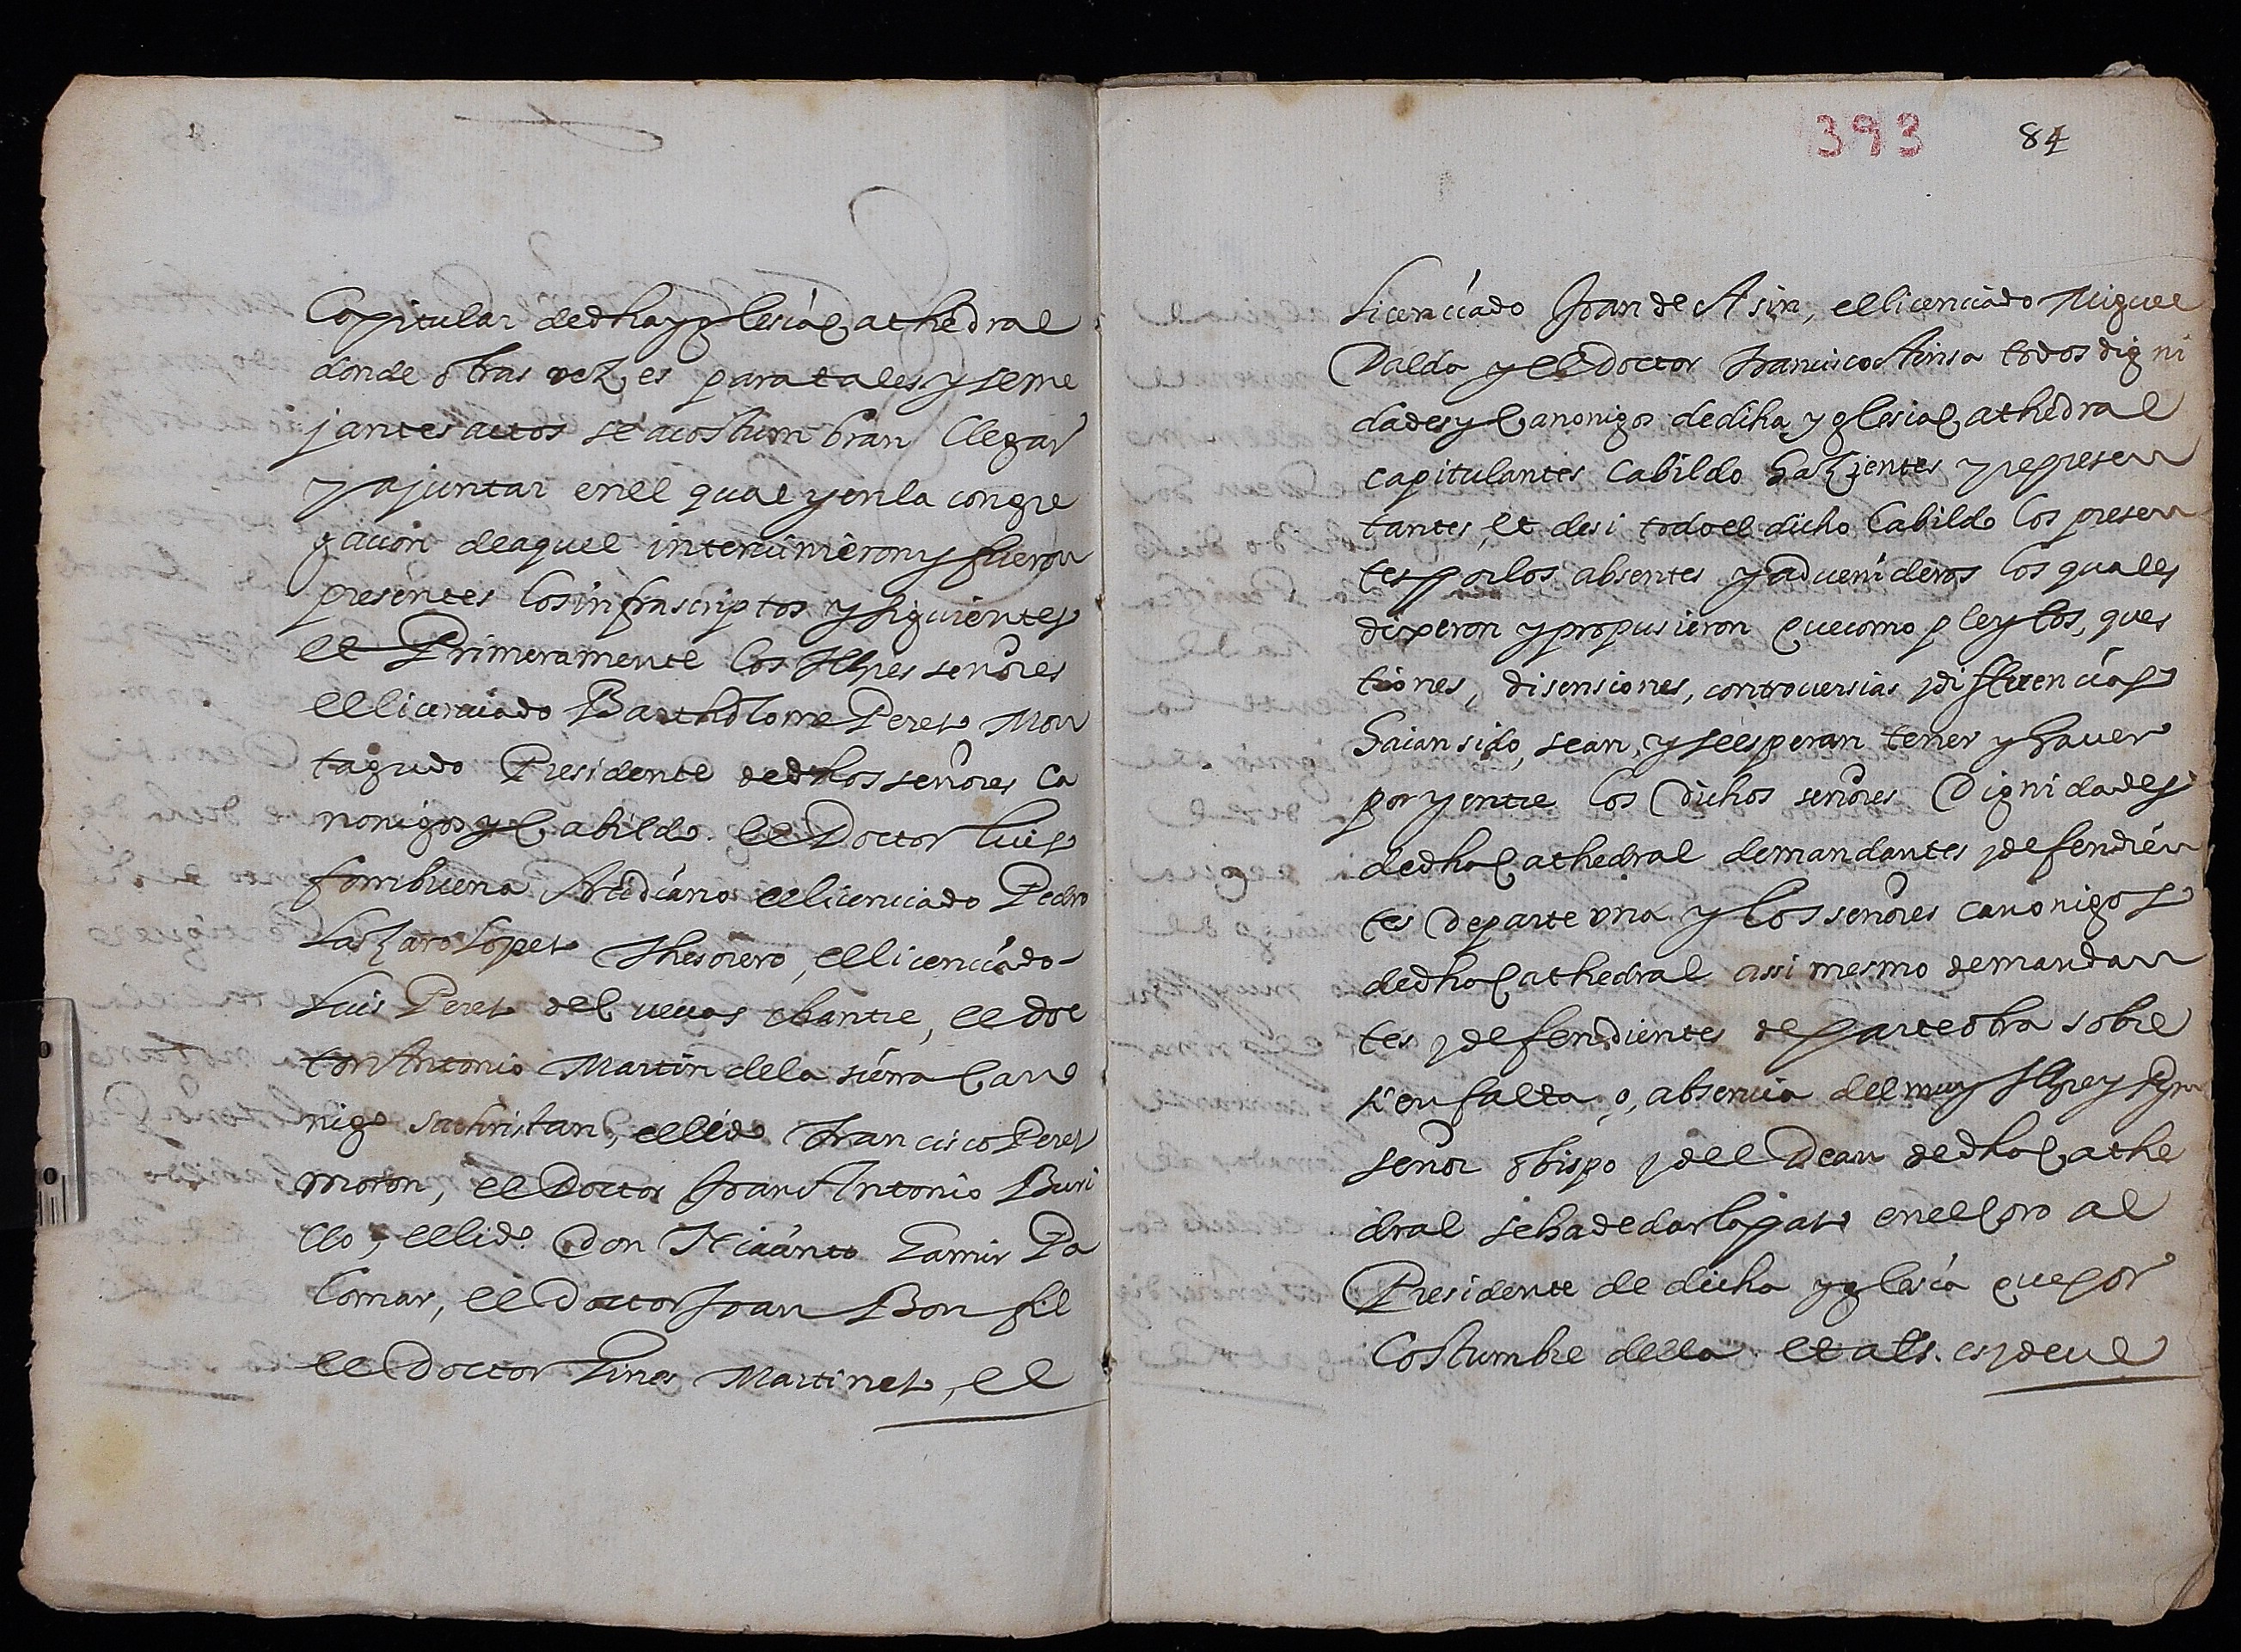 Capitular de dha yglesia Cathedral
donde otras vezes para tales y seme
jantes actos se acostumbran llegar
y ajuntar en el qual y en la congre
gacion de aquel interuinieron y fueron
presentes los infrascriptos y siguientes
et Primeramente los Illres señores
el licenciado Bartholome Perez Mon
tagudo Presidente de dhos señores Ca
nonigos y Cabildo. el Doctor Luis
fombuena Arcediano el licenciado Pedro
Lazaro Lopez Thesorero, el licenciado
Luis Perez de Cueuas chantre, el doc
tor Antonio Martin de la sierra Cano
nigo sachristan, el lido Francisco Perez
moron, el Doctor Joan Antonio Buri
llo, el lido. Don Jacinto Zamir Pa
lomar, el Doctor Joan Bonfil
el Doctor Gines Martinez, el
393 84
Licenciado Joan de Asin, el licenciado Miguel
Dalda y el Doctor Francisco Ainsa todos digni
dades y Canonigos de dicha yglesia Cathedral
capitulantes Cabildo hazientes y represen
tantes, et de si todo el dicho Cabildo los presen
tes por los absentes y aduenideros los quales
dixeron y propusieron que como pleytos, ques
tiones, disensiones, controuersias y differencias
haian sido, sean, y se esperan tener y hauer
por y entre los Dichos señores Dignidades
de dha Cathedral demandantes y defendien
tes de parte vna y los señores canonigos
de dha Cathedral assi mesmo demandan
tes y defendientes de parte otra sobre
si en falta o, absencia del muy Illre y Rmo
señor obispo y del Dean de dha Cathe
dral se ha de dar la paz en el Coro al
Presidente de dicha yglesia que por
Costumbre della et als. es y deue